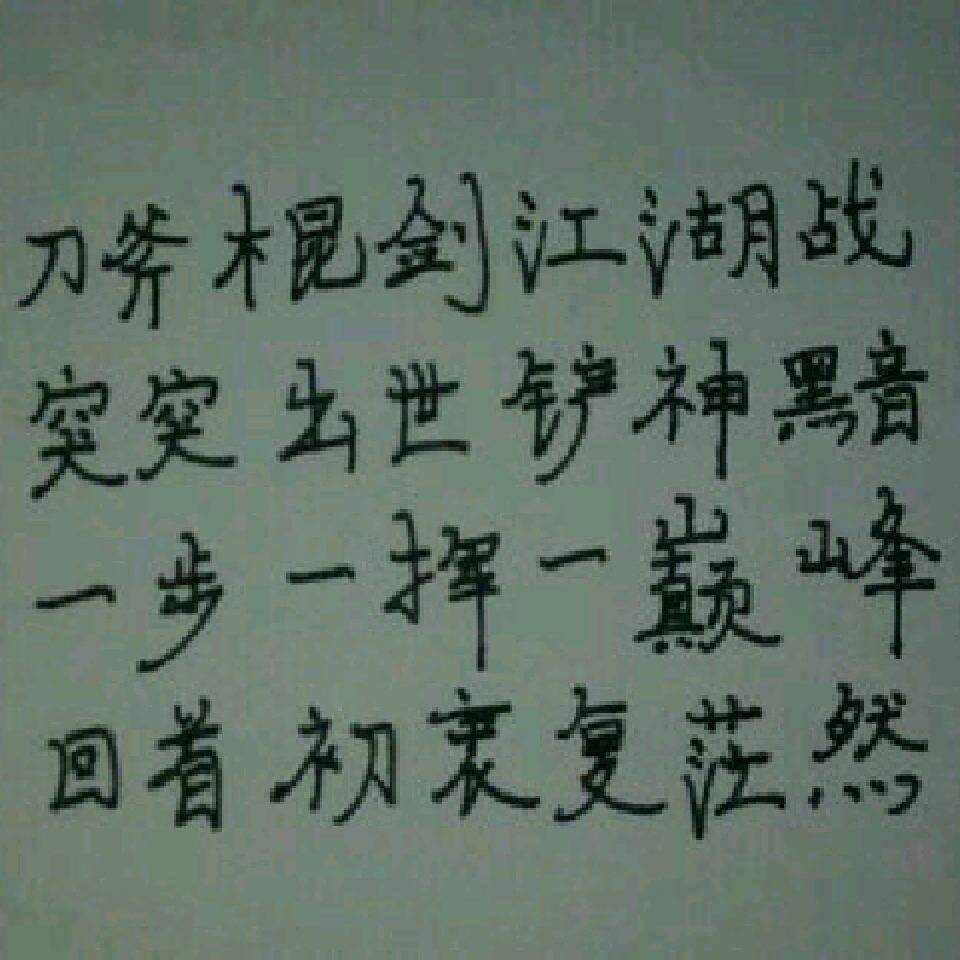 刀斧棍剑江湖战
突突出世铲神黯
一步一挥一巅峰
回首初衷复茫然